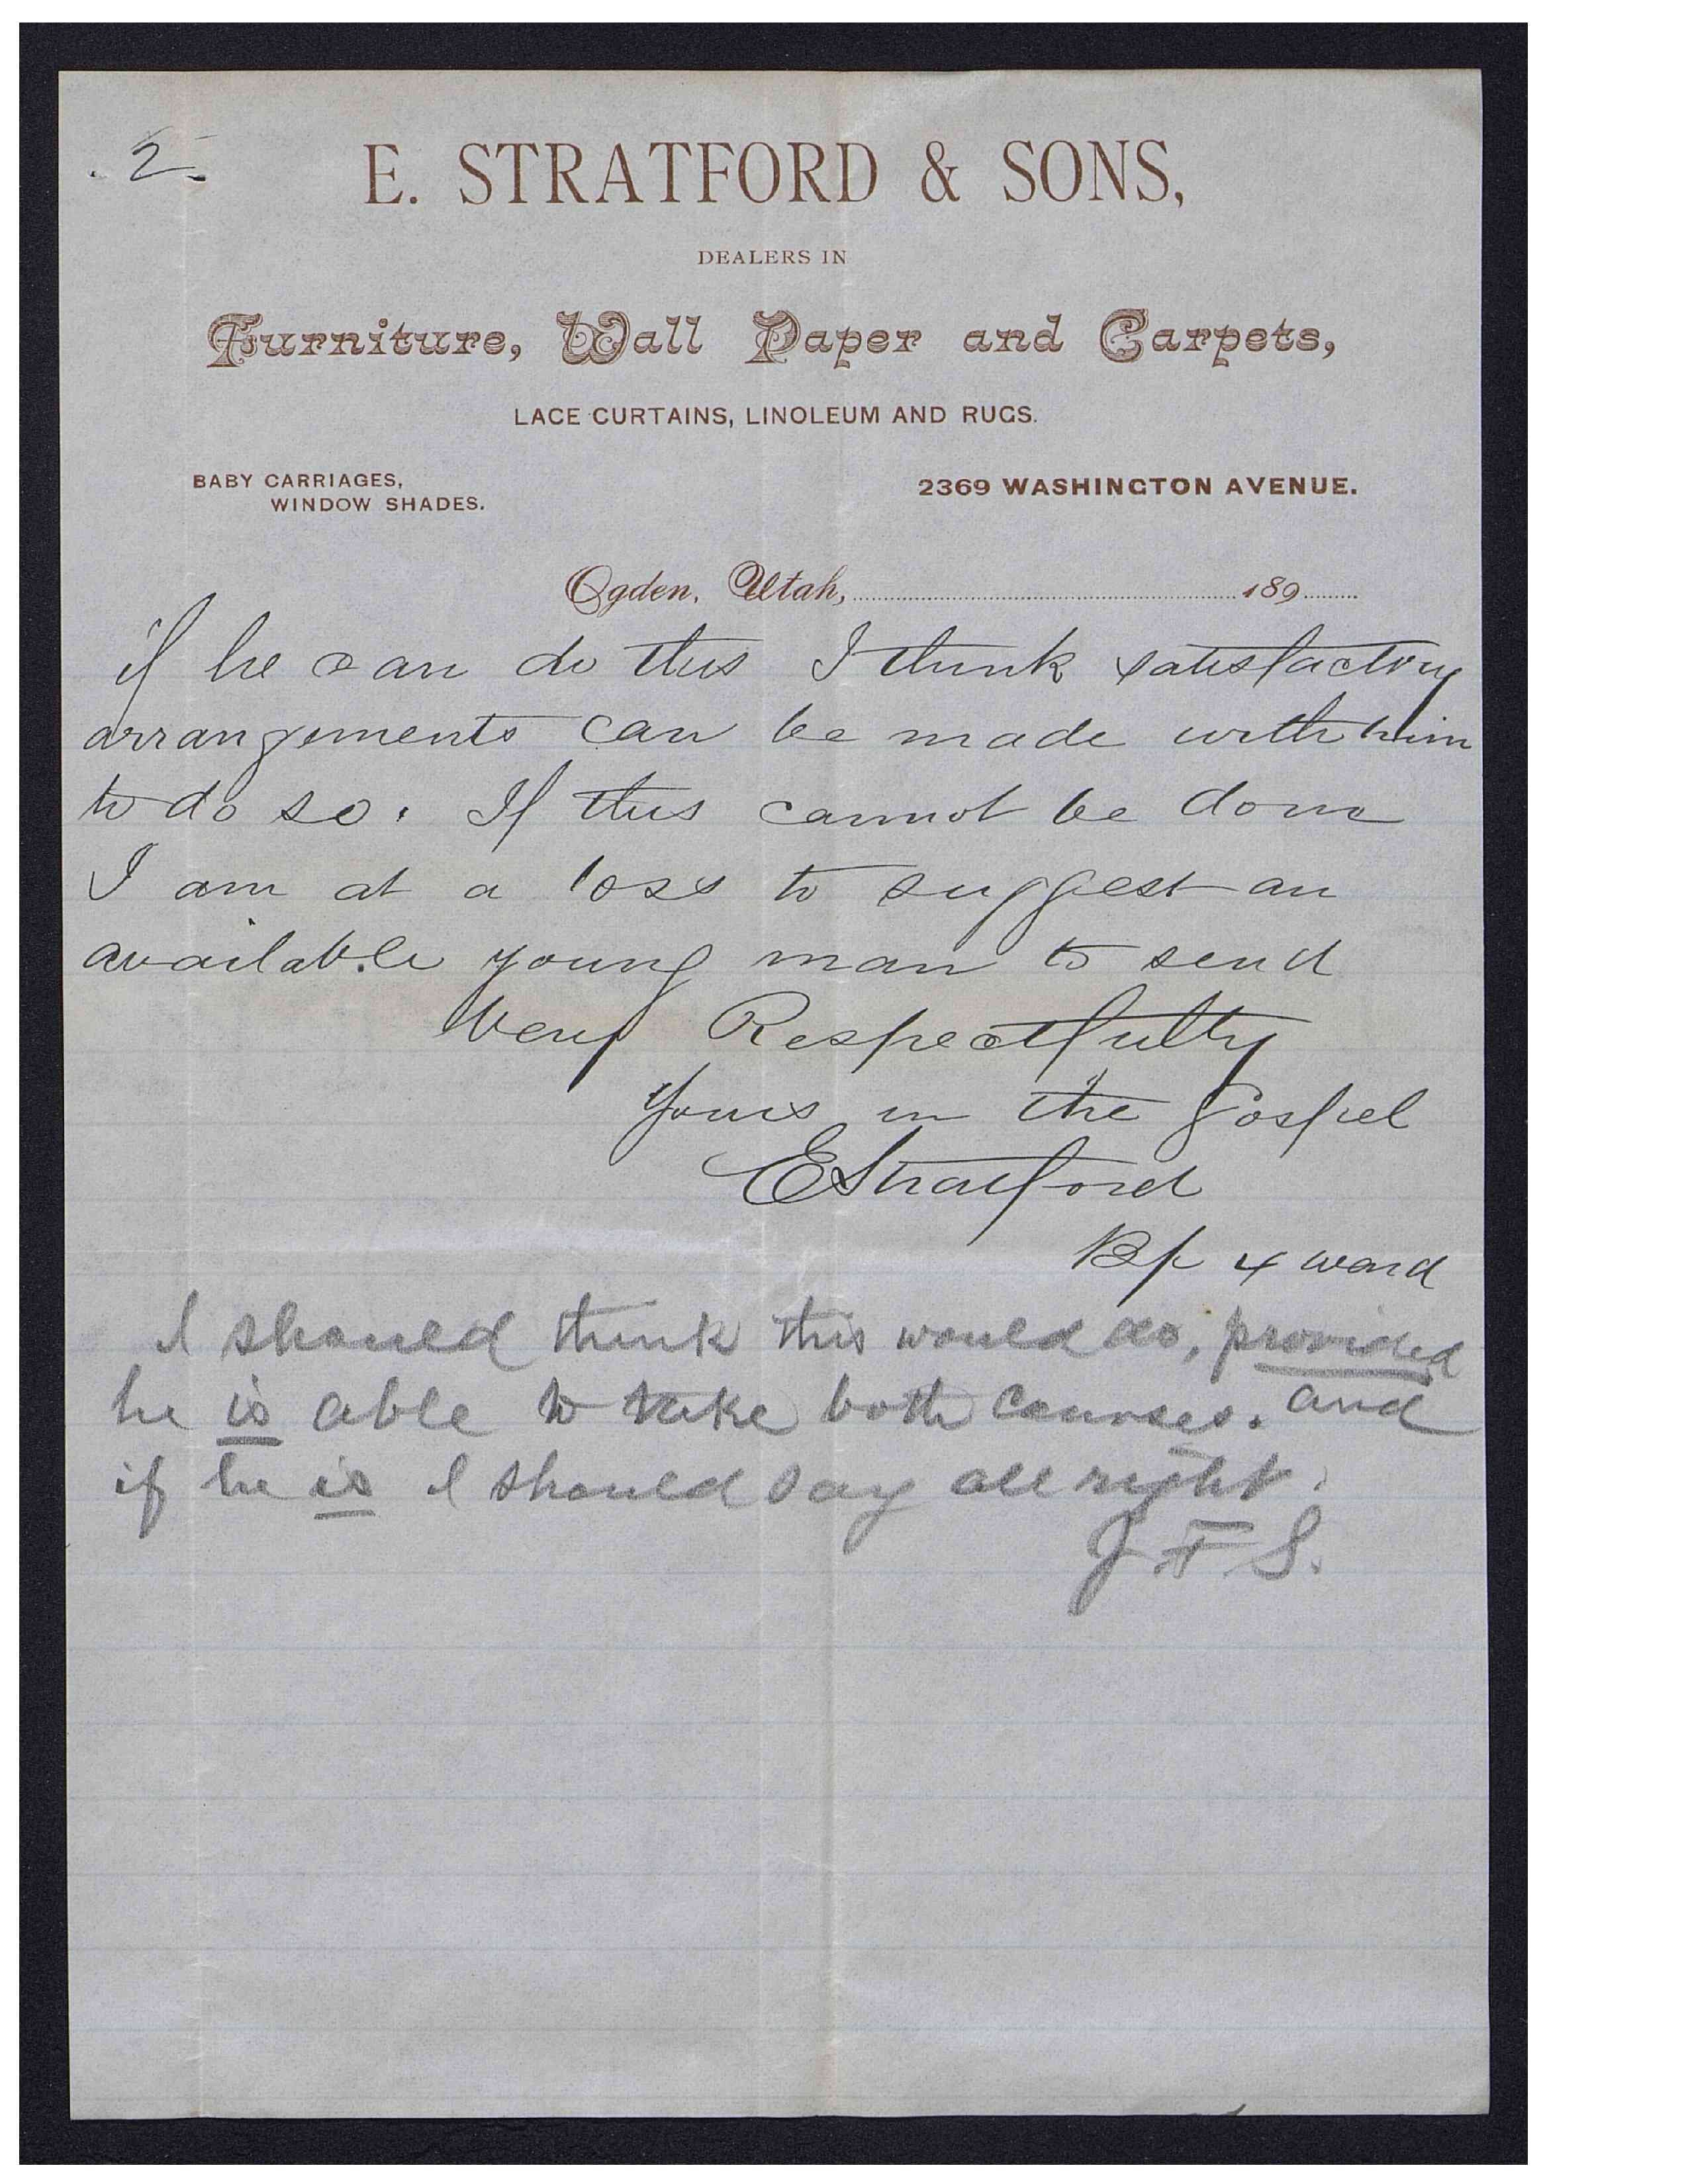 . 2.
E. STRATFORD & SONS,
DEALERS IN
Furniture, Wall Paper and Carpets,
LACE CURTAINS, LINOLEUM AND RUGS.
BABY CARRIAGES,
WINDOW SHADES.
2369 WASHINGTON AVENUE.
Ogden, Utah, 189
if he can do this I think satisfactory
arrangements can be made with him
to do so. If this cannot be done
I am at a loss to suggest an
available young man to send
Very Respectfully
Yours in the Gospel
E Stratford
Bp 4 ward
I should think this would do, provided
he is able to take both courses. and
if he is I should say all right.
J. F. S.